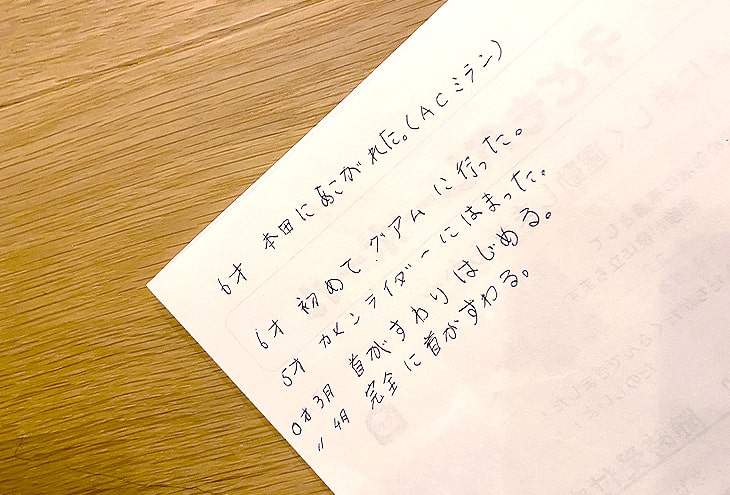 6才 本田にあこがれた。(ACミラン)
6才 初めてグアムに行った。
5才 カメンライダーにはまった。
0才3月 首がすわりはじめる。
〃 4月 完全に首がすわる。